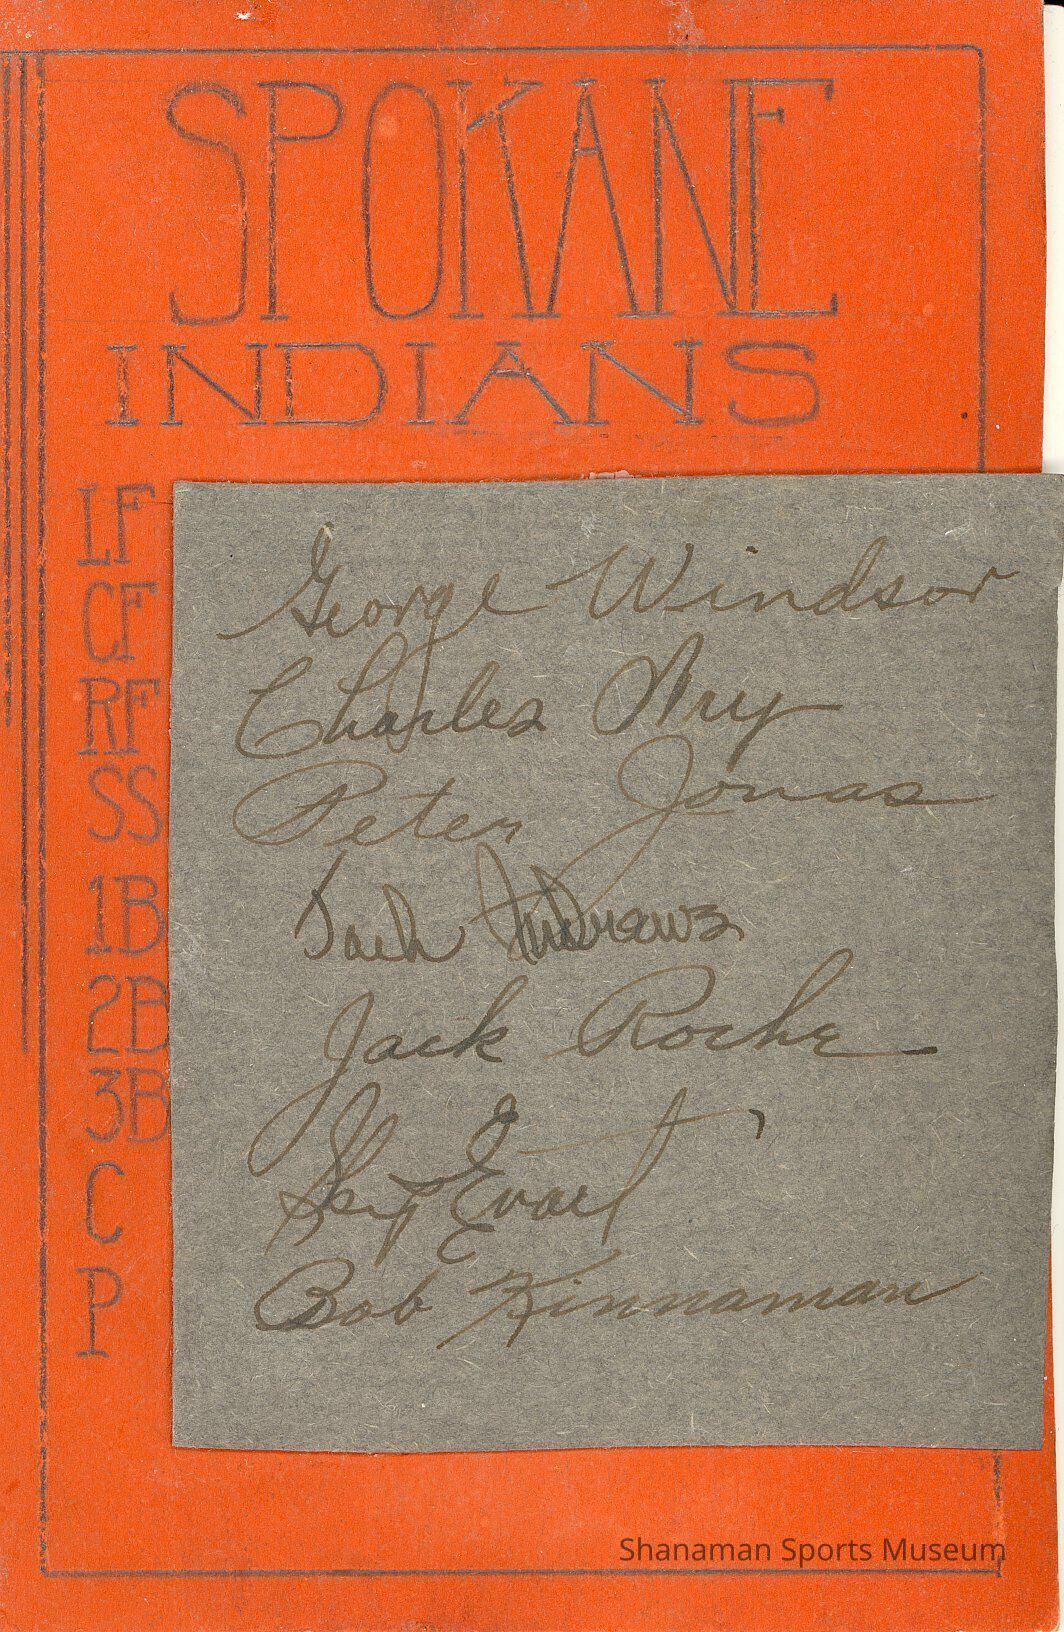 SPOKANE
INDIANS
LF
CF
RF
SS
1B
2B
3B
C
P
George Windsor
Charles Wry
Peter Jonas
Jack Andrews
Jack Roche
Skip Evart
Bob Kinnaman
Shanaman Sports Museum